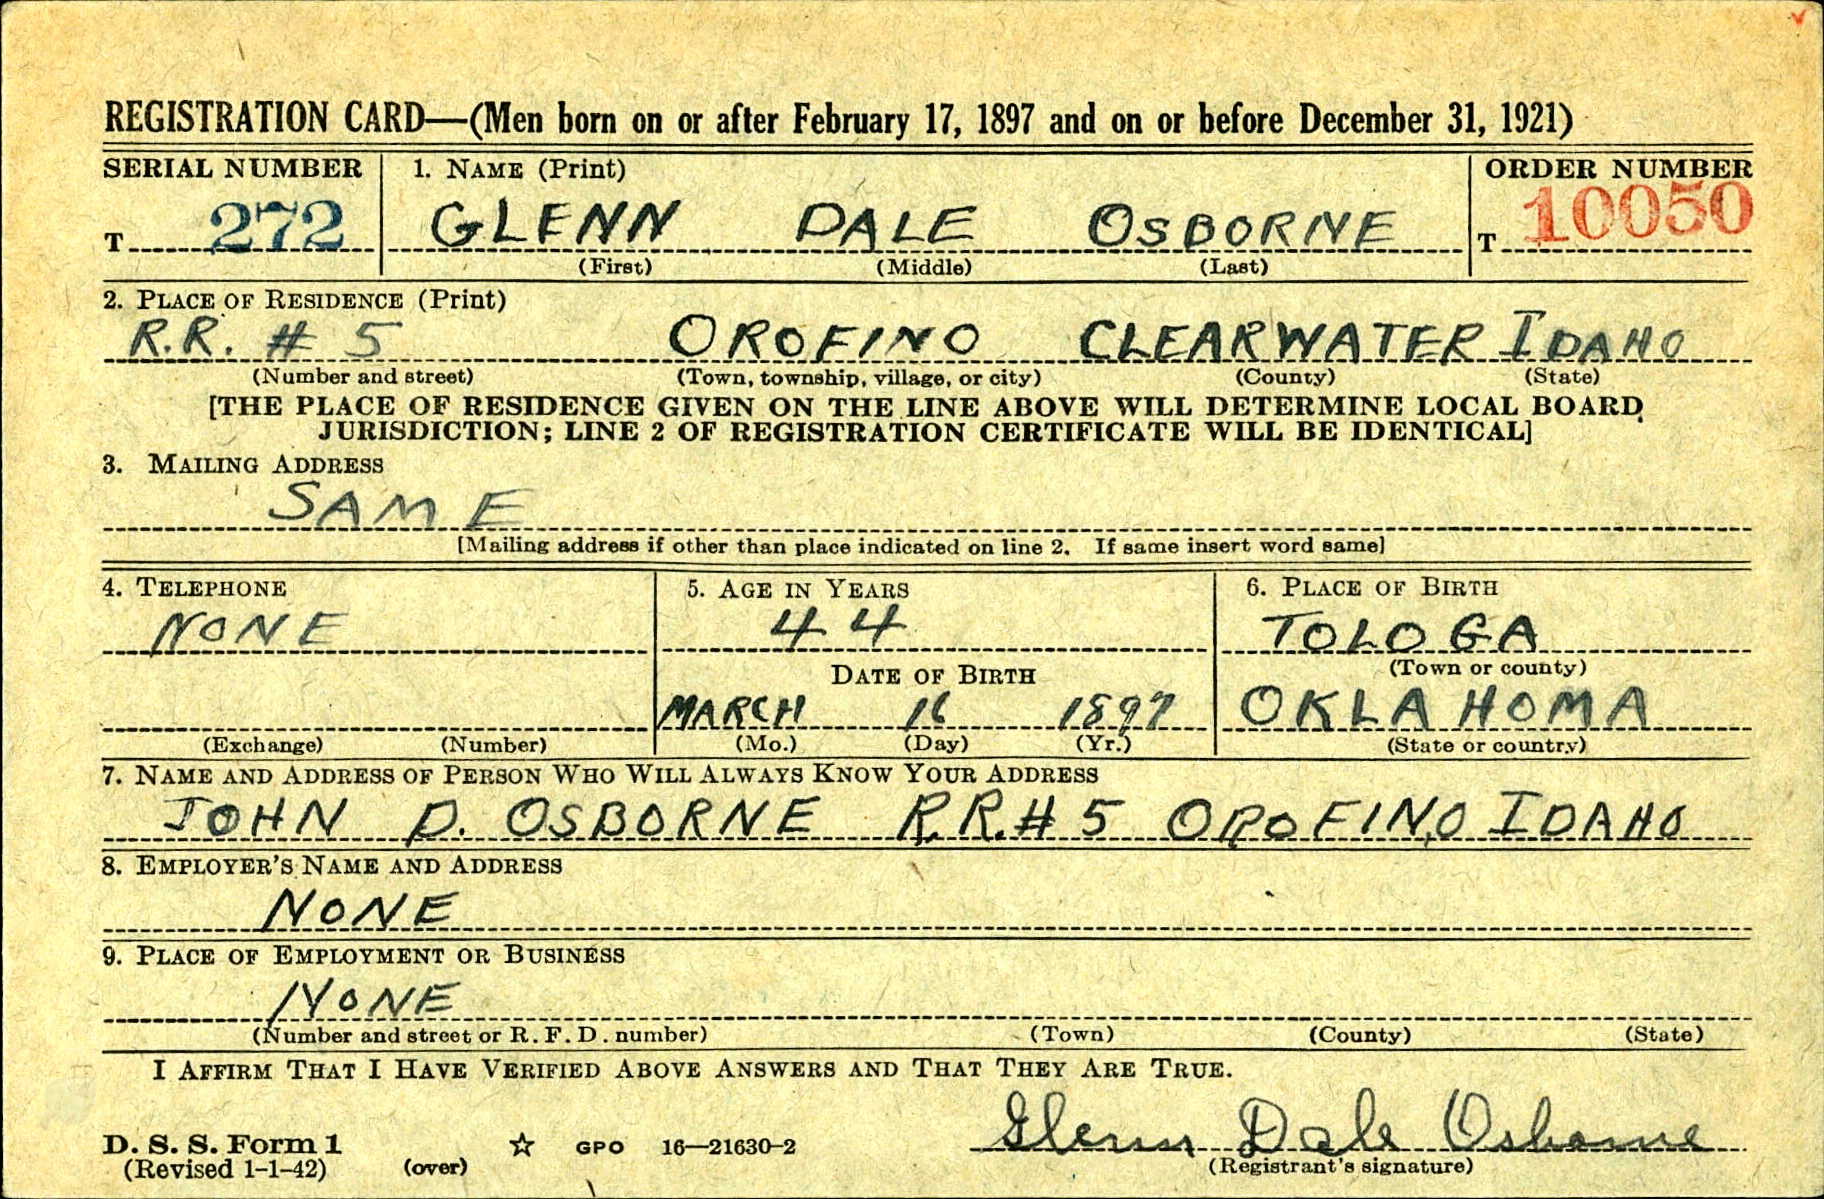 REGISTRATION CARD—(Men born on or after February 17, 1897 and on or before December 31, 1921)
SERIAL NUMBER 1. NAME (Print) ORDER NUMBER
T 272 GLENN DALE OSBORNE T 10050
(First) (Middle) (Last)
2. PLACE OF RESIDENCE (Print)
R.R. # 5 OROFINO CLEARWATER IDAHO
(Number and street) (Town, township, village, or city) (County) (State)
[THE PLACE OF RESIDENCE GIVEN ON THE LINE ABOVE WILL DETERMINE LOCAL BOARD
JURISDICTION; LINE 2 OF REGISTRATION CERTIFICATE WILL BE IDENTICAL]
3. MAILING ADDRESS
SAME
[Mailing address if other than place indicated on line 2. If same insert word same]
4. TELEPHONE 5. AGE IN YEARS 6. PLACE OF BIRTH
NONE 44 TOLOGA
DATE OF BIRTH (Town or county)
MARCH 16 1897 OKLAHOMA
(Exchange) (Number) (Mo.) (Day) (Yr.) (State or country)
7. NAME AND ADDRESS OF PERSON WHO WILL ALWAYS KNOW YOUR ADDRESS
JOHN D. OSBORNE R.R.# 5 OROFINO IDAHO
8. EMPLOYER'S NAME AND ADDRESS
NONE
9. PLACE OF EMPLOYMENT OR BUSINESS
NONE
(Number and street or R. F. D. number) (Town) (County) (State)
I AFFIRM THAT I HAVE VERIFIED ABOVE ANSWERS AND THAT THEY ARE TRUE.
D. S. S. Form 1 ☆ GPO 16—21630-2 Glenn Dale Osborne
(Revised 1-1-42) (over) (Registrant's signature)